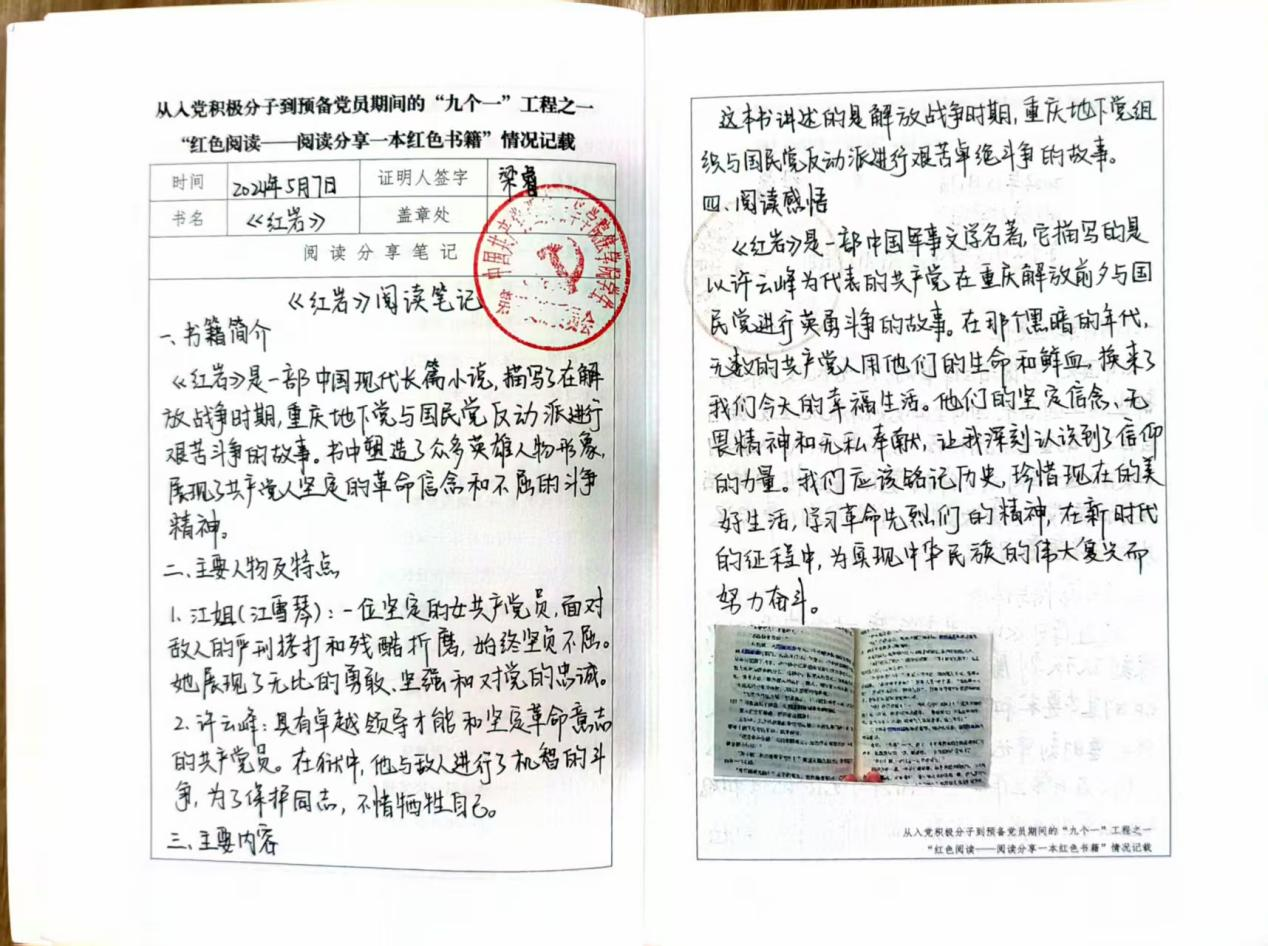 从入党积极分子到预备党员期间的“九个一”工程之一
“红色阅读——阅读分享一本红色书籍”情况记载
时间 2024年5月7日 证明人签字 梁睿
书名 《红岩》 盖章处
阅读分享笔记
《红岩》阅读笔记
一、书籍简介
《红岩》是一部中国现代长篇小说，描写了在解
放战争时期，重庆地下党与国民党反动派进行
艰苦斗争的故事。书中塑造了众多英雄人物形象，
展现了共产党人坚定的革命信念和不屈的斗争
精神。
二、主要人物及特点
1. 江姐（江雪琴）：一位坚定的女共产党员，面对
敌人的严刑拷打和残酷折磨，始终坚贞不屈。
她展现了无比的勇敢、坚强和对党的忠诚。
2. 许云峰：具有卓越领导才能和坚定革命意志
的共产党员。在狱中，他与敌人进行了机智的斗
争，为了保护同志，不惜牺牲自己。
三、主要内容
这本书讲述的是解放战争时期，重庆地下党组
织与国民党反动派进行艰苦卓绝斗争的故事。
四、阅读感悟
《红岩》是一部中国军事文学名著，它描写的是
以许云峰为代表的共产党在重庆解放前夕与国
民党进行英勇斗争的故事。在那个黑暗的年代，
无数的共产党人用他们的生命和鲜血，换来了
我们今天的幸福生活。他们的坚定信念、无
畏精神和无私奉献，让我深刻认识到了信仰
的力量。我们应该铭记历史，珍惜现在的美
好生活，学习革命先烈们的精神，在新时代
的征程中，为实现中华民族的伟大复兴而
努力奋斗。
从入党积极分子到预备党员期间的“九个一”工程之一
“红色阅读——阅读分享一本红色书籍”情况记载